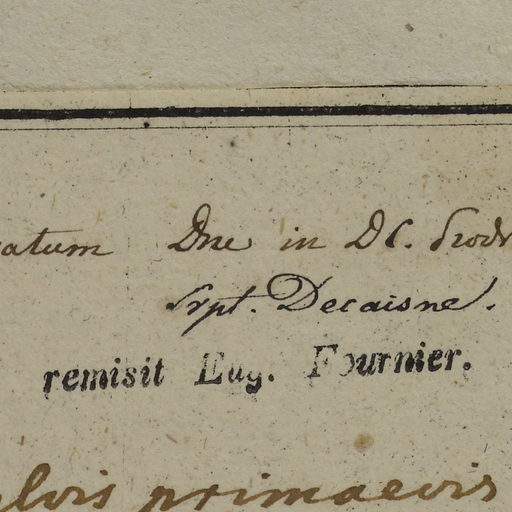 atum Dne in DC. Prodr
Script. Decaisne.
remisit Eug. Fournier.
lvis primaevis